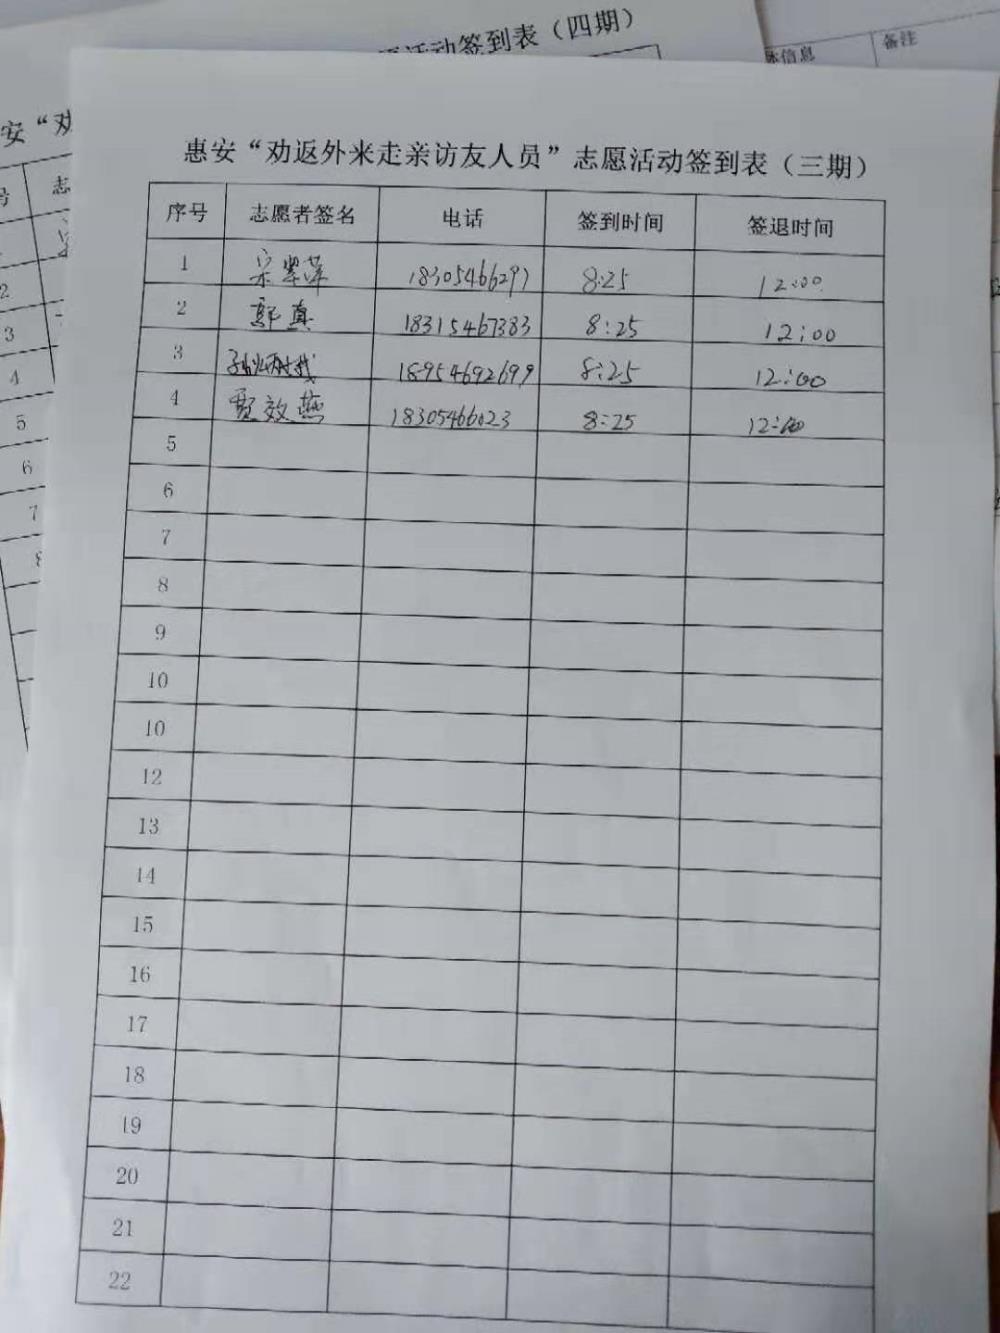 活动签到表（四期）
体信息 备注
安“劝
惠安“劝返外来走亲访友人员”志愿活动签到表（三期）
号 志
序号 志愿者签名 电话 签到时间 签退时间
1 宋翠萍 18305466297 8:25 12:00
2 郭真 18315467383 8:25 12:00
3 18954692699 8:25 12:00
4 贾效燕 18305466023 8:25 12:00
5
6
7
8
9
10
10
12
13
14
15
16
17
18
19
20
21
22
2
3
4
5
6
7
8